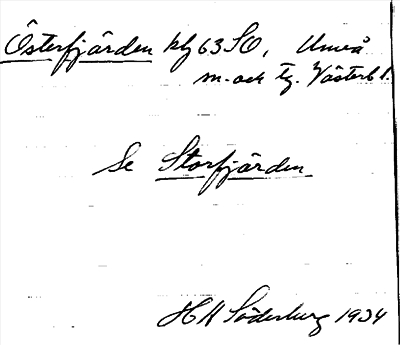 Österfjärden kbl 63 SO, Umeå
m. och tg. Västerb l.
Se Storfjärden
H Söderburg 1934